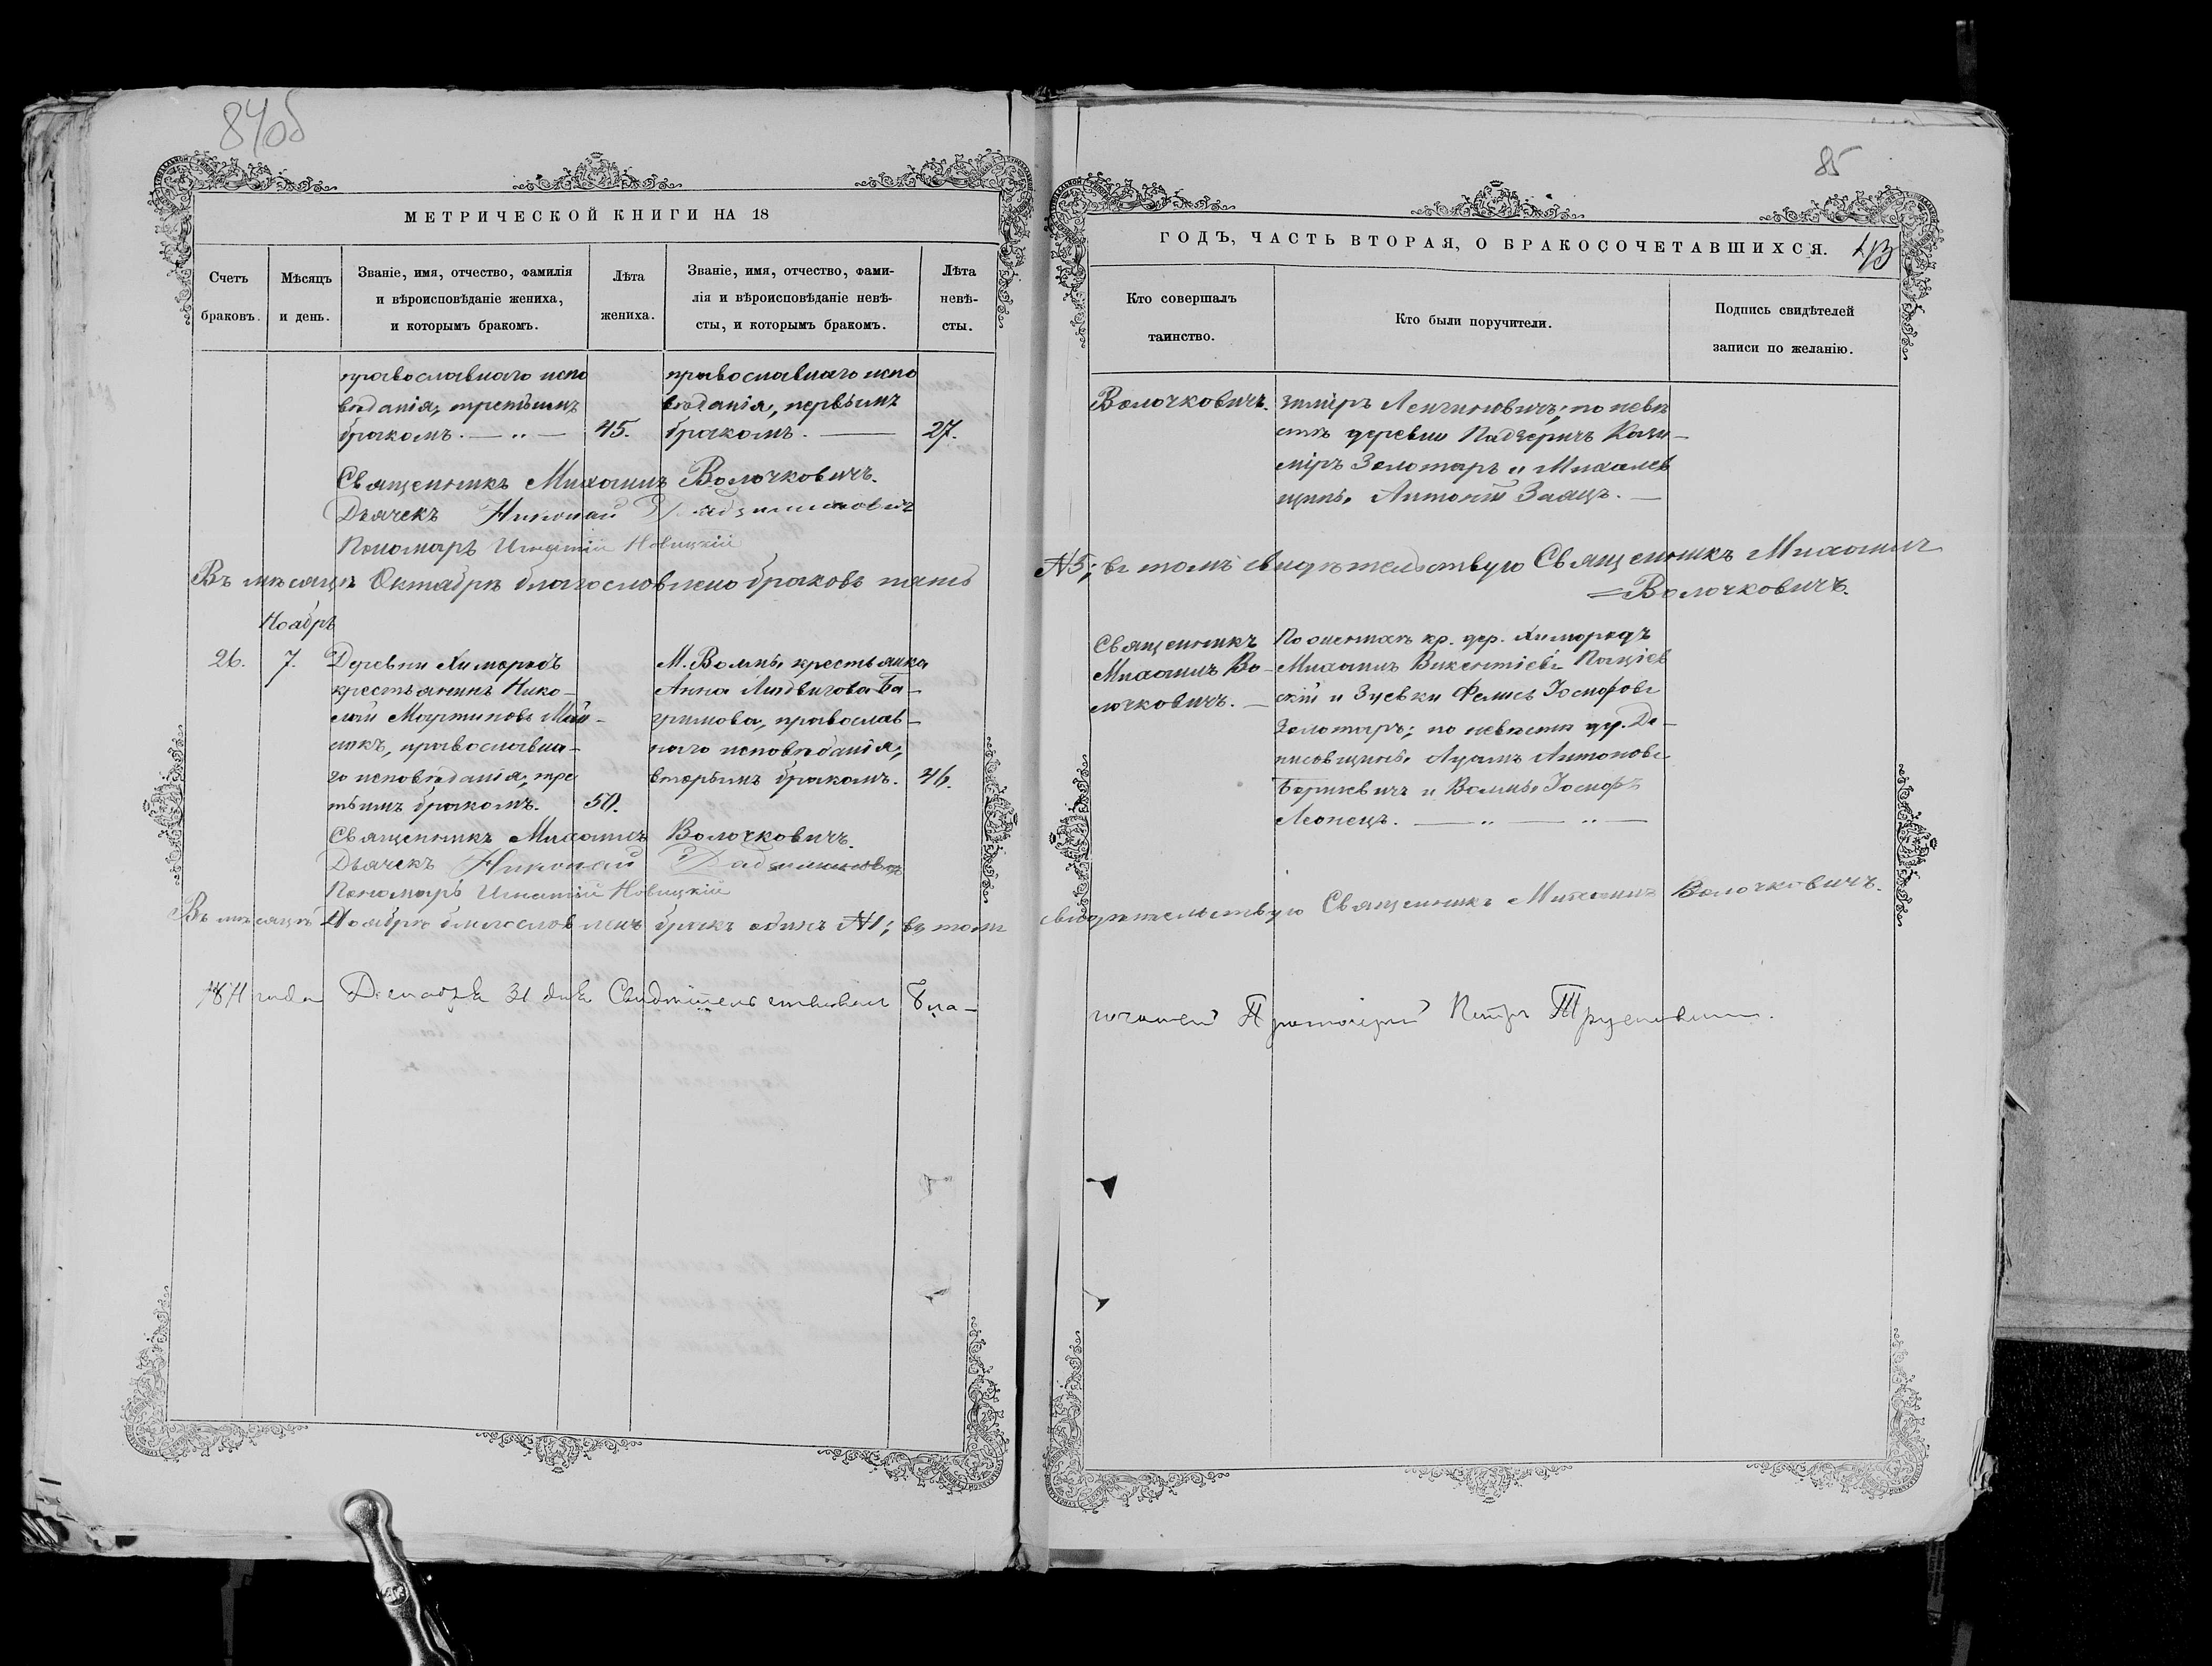 84об
МЕТРИЧЕСКОЙ КНИГИ НА 18
Счетъ браковъ.
Мѣсяцъ и день.
Званіе, имя, отчество, фамилія и вѣроисповѣданіе жениха, и которымъ бракомъ.
Лѣта жениха.
Званіе, имя, отчество, фами-
лія и вѣроисповѣданіе невѣ-
сты, и которымъ бракомъ.
Лѣта невѣ-
сты.
православнаго испо
вѣданія, третьимъ
бракомъ. — „ — 45.
православнаго испо
вѣданія, первымъ
бракомъ. — 27.
Священникъ Михаилъ Волочковичъ.
Дьячекъ Николай
Пономарь Игнатій Новицкій
Въ мѣсяцѣ Октябрѣ благословлено браковъ пять
Ноябрь
26. 7.
Деревни Химородъ
крестьянинъ Нико-
лай Мартиновъ
православна-
го исповѣданія, тре
тьимъ бракомъ. 50.
М. Волмы, крестьянка
Анна Людвигова Ба-
гримова, православ-
наго исповѣданія,
вторымъ бракомъ. 46.
Священникъ Михаилъ Волочковичъ.
Дьячекъ Николай
Пономарь Игнатій Новицкій
Въ мѣсяцѣ Ноябрѣ благословленъ бракъ одинъ №1; въ томъ
года Декабря 31 дня Свидѣтельствовалъ Бла-
85
ГОДЪ, ЧАСТЬ ВТОРАЯ, О БРАКОСОЧЕТАВШИХСЯ.
Кто совершалъ таинство.
Кто были поручители.
Подпись свидѣтелей записи по желанію.
Волочковичъ.
зиміръ по невѣ
стѣ деревни Падзеричъ Кази-
міръ Золотарь и Михалев
щины Антоній Заяцъ. —
№5; въ томъ свидѣтельствую Священникъ Михаилъ
Волочковичъ.
Священникъ
Михаилъ Во-
лочковичъ. —
По женихѣ кр. дер. Химородъ
Михаилъ Викентіевъ
скій и Зуевки Феликсъ Іосифовъ
Золотарь; по невѣстѣ др. Де-
нисовщины Адамъ Антоновъ
и Волмы Іосифъ
Леонецъ. — „ — „ —
свидѣтельствую Священникъ Михаилъ Волочковичъ.
гочинный Протоіерей Петръ